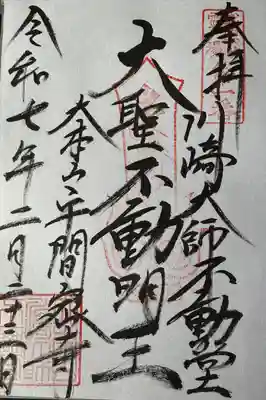 奉拝
川崎大師不動堂
大聖不動明王
大本山平間寺
令和七年二月二十三日